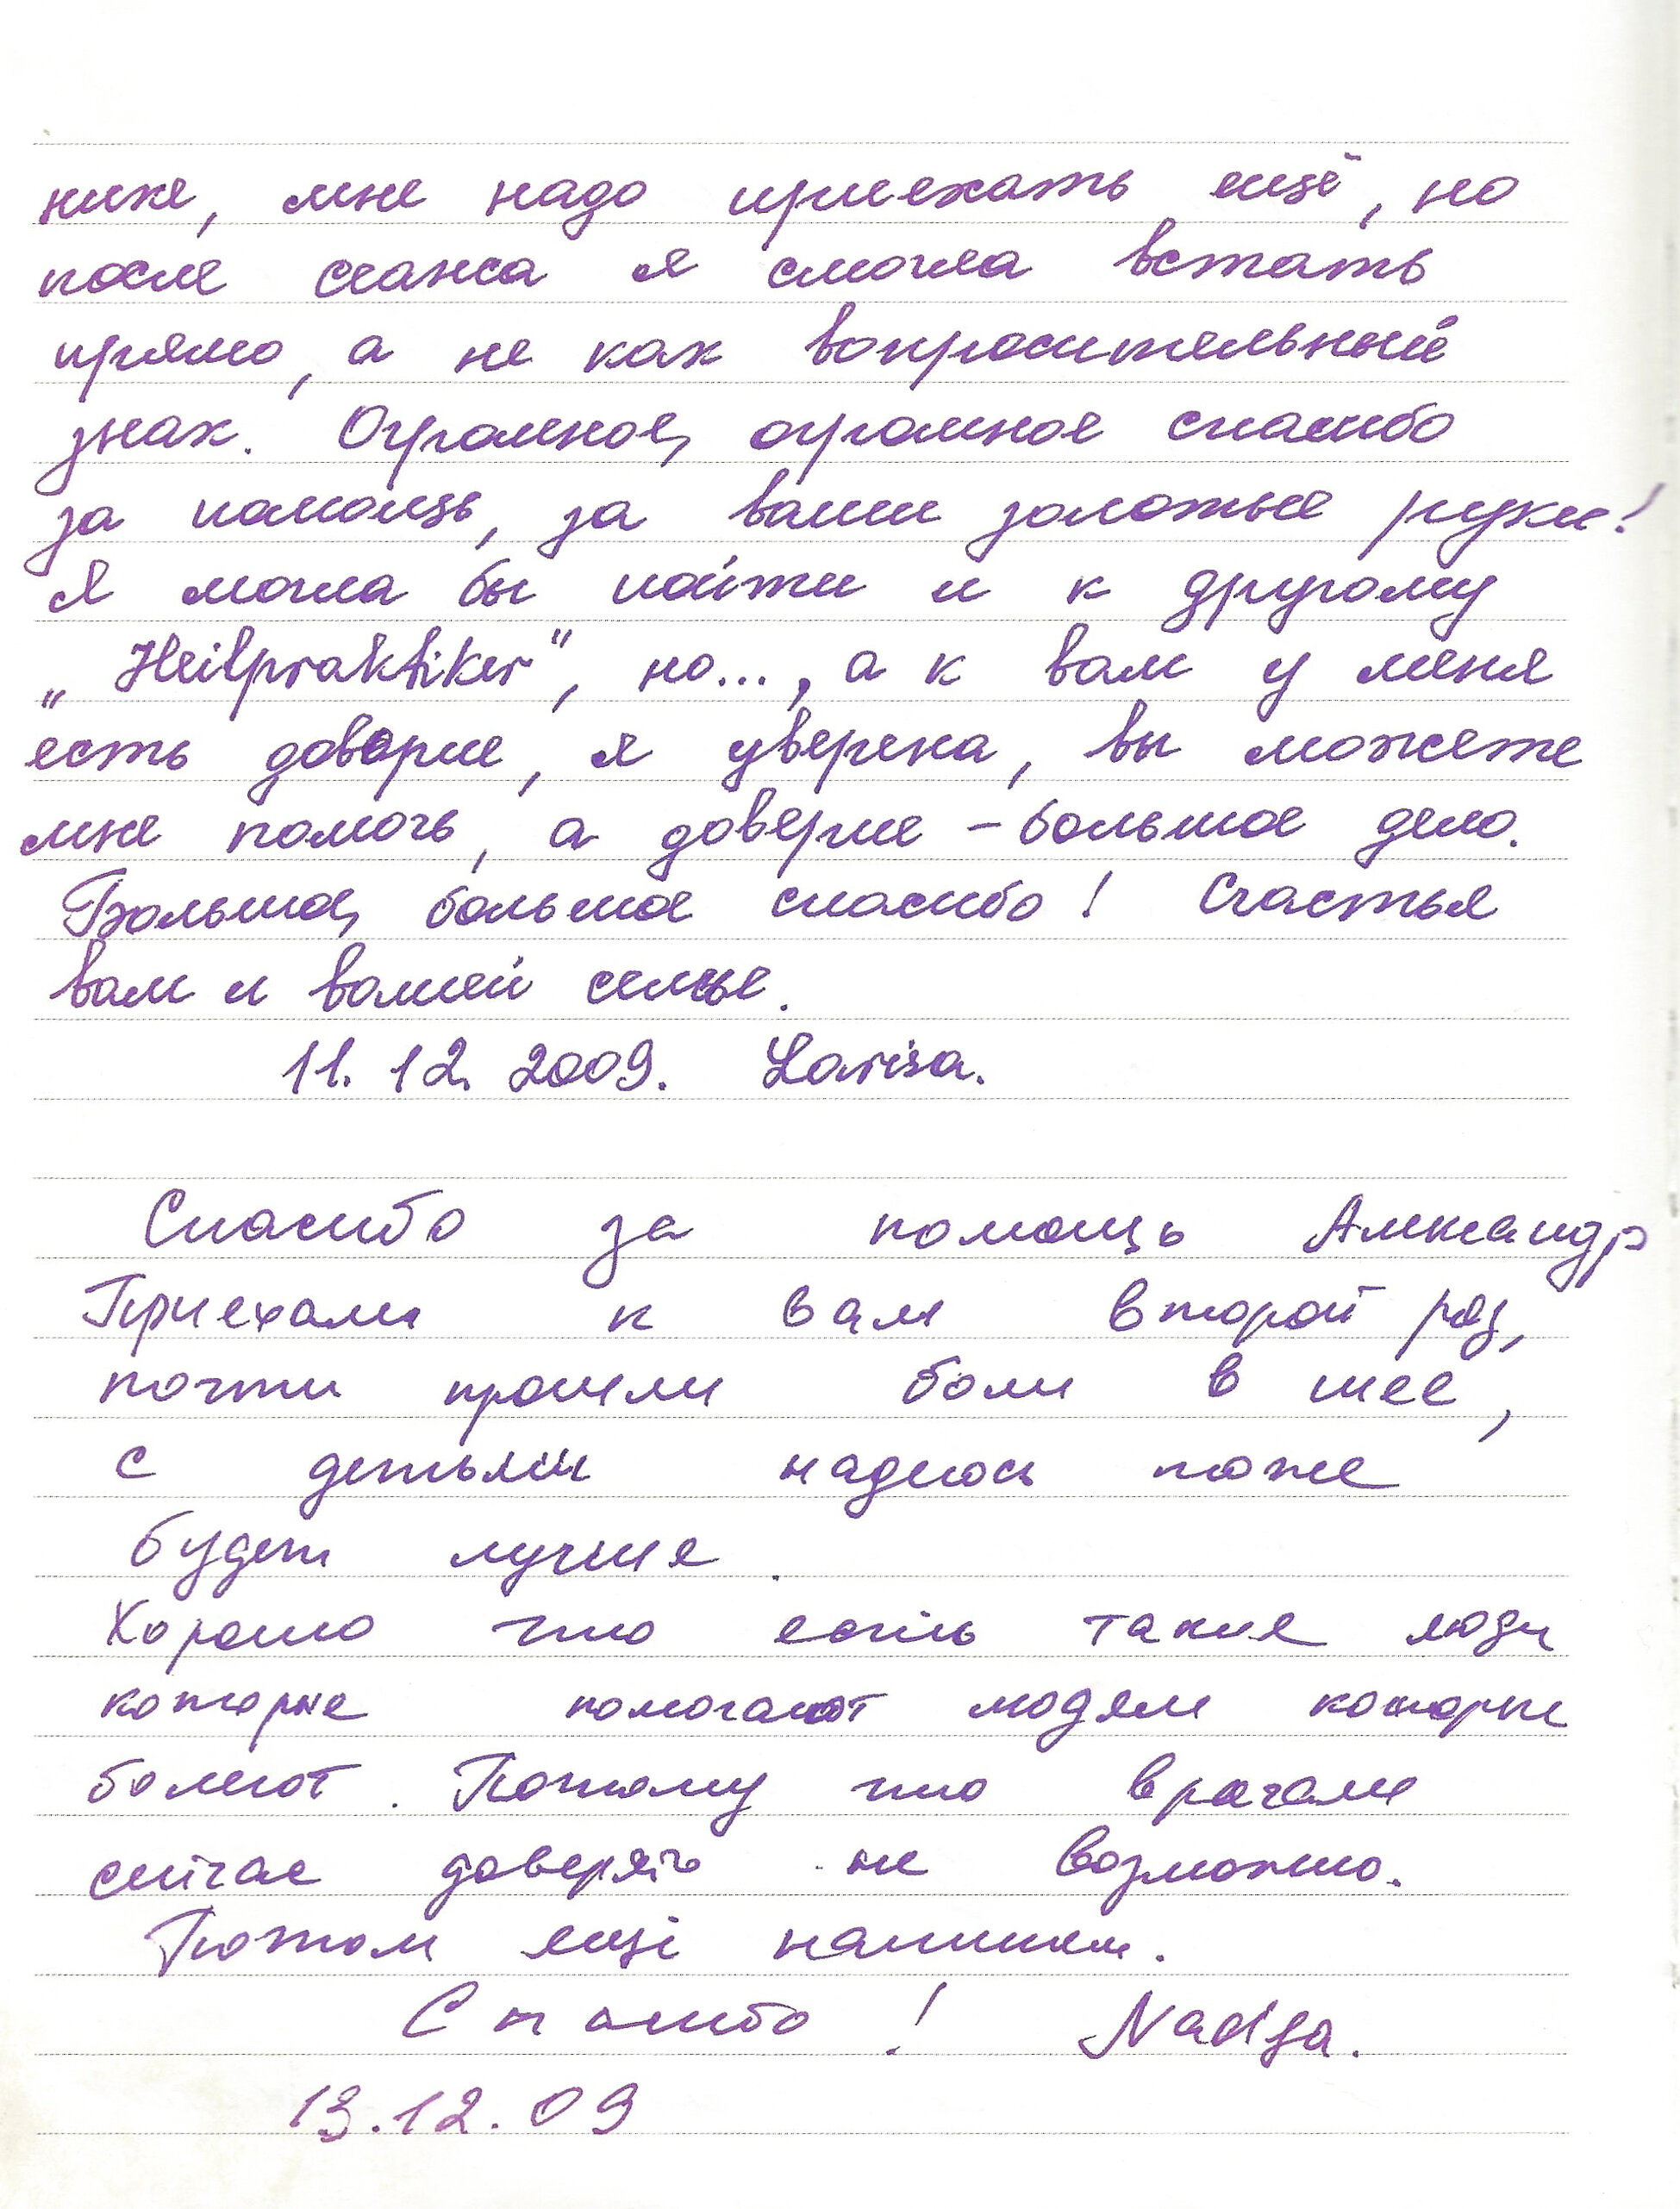 ниже, мне надо приехать ещё, но
после сеанса я смогла встать
прямо, а не как вопросительный
знак. Огромное, огромное спасибо
за помощь, за ваши золотые руки!
Я могла бы пойти и к другому
„Heilpraktiker“, но..., а к вам у меня
есть доверие, я уверена, вы можете
мне помочь, а доверие – большое дело.
Большое, большое спасибо! Счастья
вам и вашей семье.
11.12.2009. Larisa.
Спасибо за помощь Александр
Приехали к вам второй раз,
почти прошли боли в шее,
с детьми надеюсь тоже
будет лучше.
Хорошо что есть такие люди
которые помогают людям которые
болеют. Потому что врачам
сейчас доверять не возможно.
Потом ещё напишем.
Спасибо! Nadja.
13.12.09